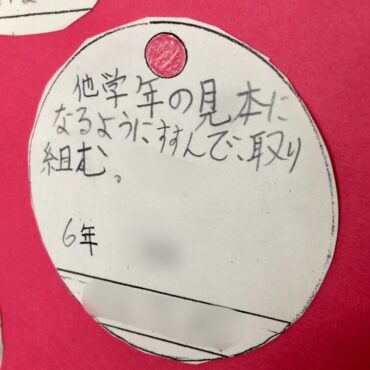 他学年の見本に
なるようにすすんで、取り
組む。
6年